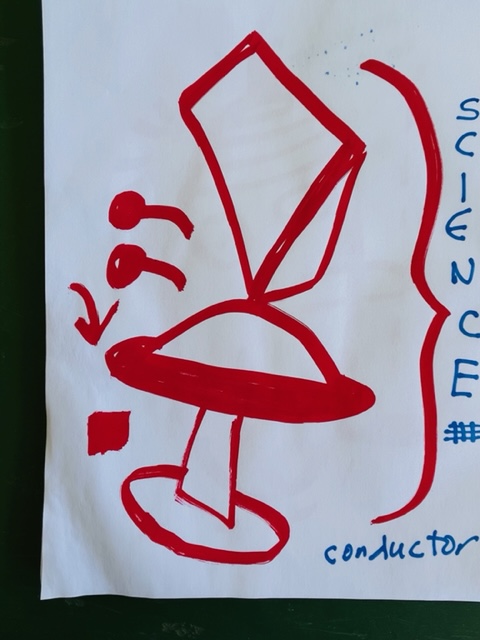 SCIENCE#
conductor